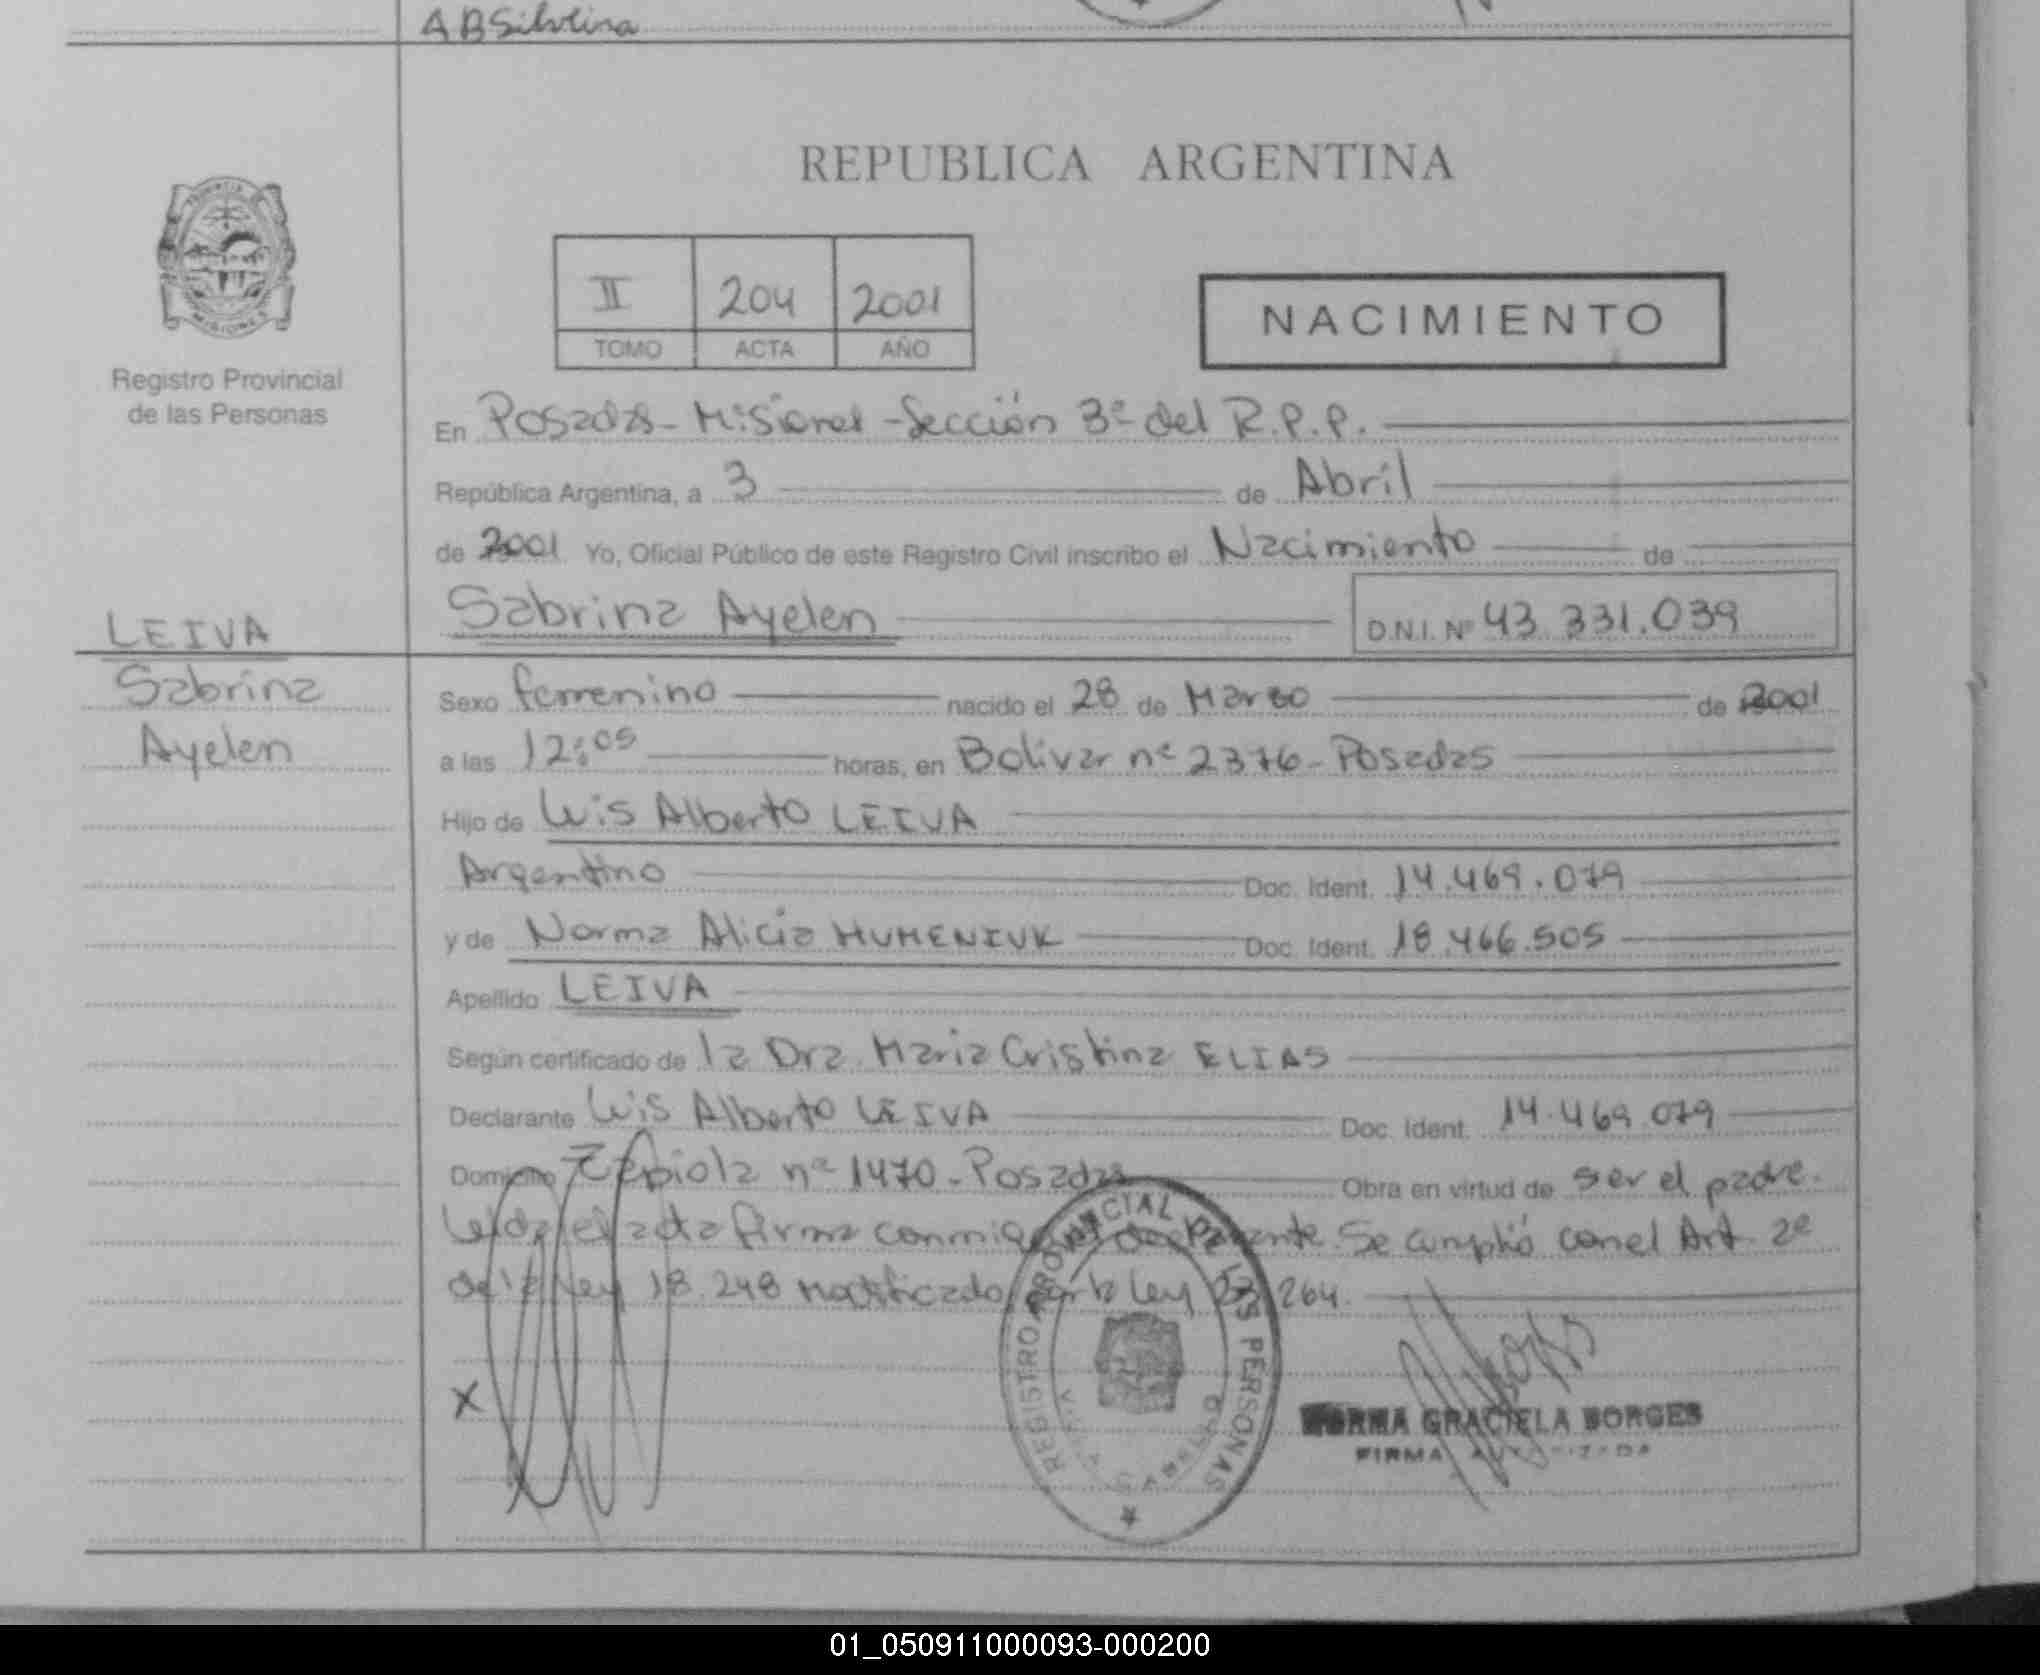 ABSilvina
REPUBLICA ARGENTINA
II 204 2001
TOMO ACTA AÑO
NACIMIENTO
MISIONES
Registro Provincial
de las Personas
En Posadas - Misiones - Sección 3ª del R.P.P.
República Argentina, a 3 de Abril
de 2001 Yo, Oficial Público de este Registro Civil inscribo el Nacimiento de
Sabrina Ayelen D.N.I. Nº 43.331.039
LEIVA
Sabrina
Ayelen
Sexo femenino nacido el 28 de Marzo de 2001
a las 12:05 horas, en Bolivar nº 2376 - Posadas
Hijo de Luis Alberto LEIVA
Argentino Doc. Ident. 14.469.079
y de Norma Alicia HUMENIUK Doc. Ident. 18.466.505
Apellido LEIVA
Según certificado de la Dra. Maria Cristina ELIAS
Declarante Luis Alberto LEIVA Doc. Ident. 14.469.079
Domicilio Zapiola nº 1470 - Posadas Obra en virtud de ser el padre.
Leida el acta firma conmigo el declarante. Se cumplió con el Art. 2º
de la Ley 18.248 modificado por la Ley 23.264.
REGISTRO PROVINCIAL DE LAS PERSONAS
X
NORMA GRACIELA BORGES
FIRMA AUTORIZADA
01_050911000093-000200